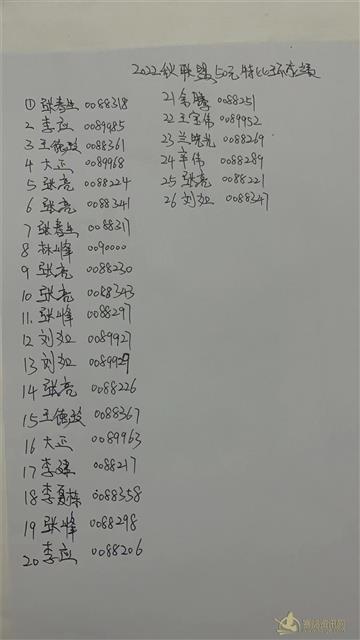 2022秋联盟50元特比环成绩
① 张春生 0088318
2 李应 0089985
3 王德政 0088361
4 大正 0089968
5 张亮 0088224
6 张亮 0088341
7 张春生 0088317
8 林峰 0090000
9 张亮 0088230
10 张亮 0088343
11. 张峰 0088297
12 刘 0089927
13 刘 0089929
14 张亮 0088226
15 王德政 0088367
16 大正 0089963
17 李建 0088217
18 李夏栋 0088358
19 张峰 0088298
20 李应 0088206
21 0088251
22 王宝伟 0089952
23 兰晓光 0088269
24 辛伟 0088289
25 张亮 0088221
26 刘 0088347
赛鸽资讯网